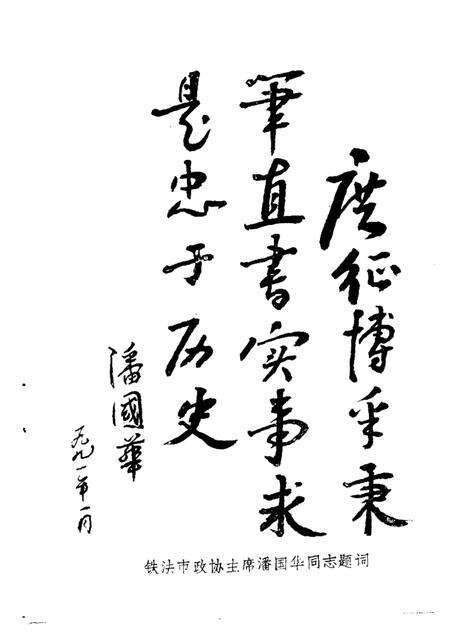 廣征博采秉
筆直書实事求
是忠于历史
潘國華
一九九一年一月
铁法市政协主席潘国华同志题词